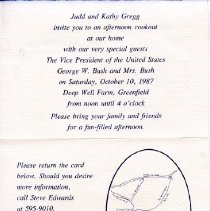 Judd and Kathy Gregg
invite you to an afternoon cookout
at our home
with our very special guests
The Vice President of the United States
George W. Bush and Mrs. Bush
on Saturday, October 10, 1987
Deep Well Farm, Greenfield
from noon until 4 o'clock
Please bring your family and friends
for a fun-filled afternoon.
Please return the card
below. Should you desire
more information,
call Steve Edwards
at 595-9010.